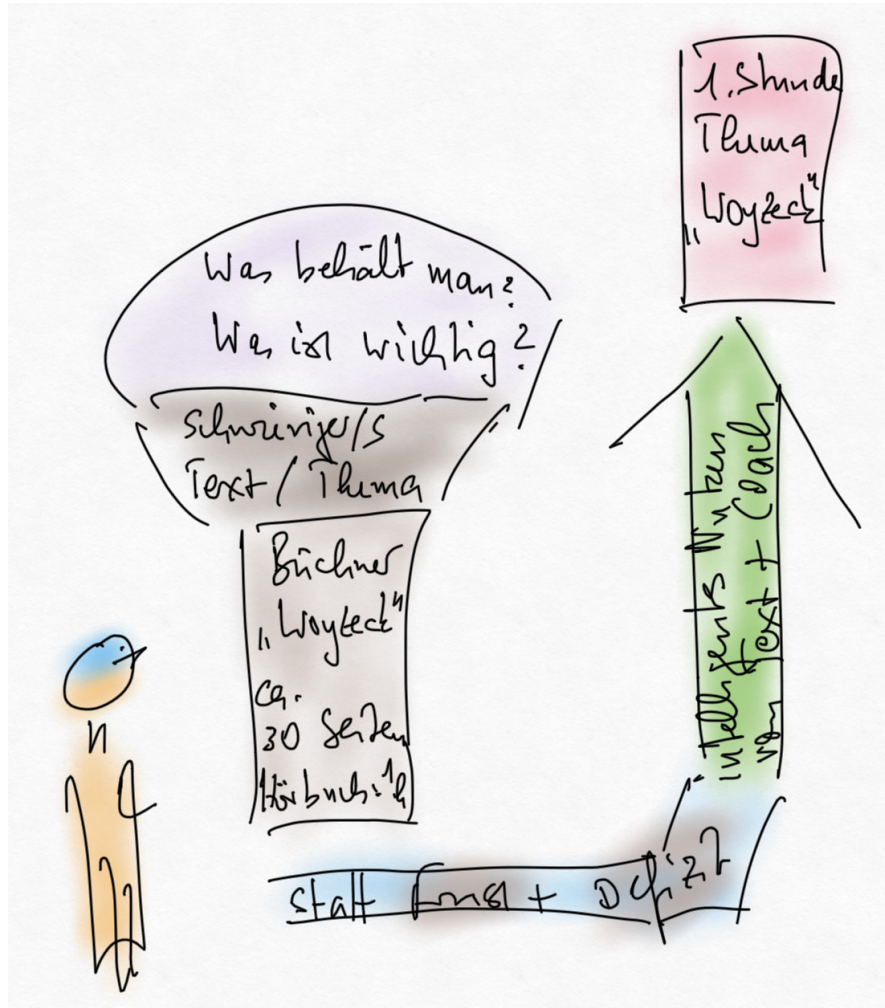 Was behält man?
Was ist wichtig?
schwierige/s
Text / Thema
Büchner
„Woyzeck"
ca.
30 Seiten
Hörbuch: 1h
statt Frust + Defizit
intelligentes Nutzen
von Text + Coach
1. Stunde
Thema
„Woyzeck"